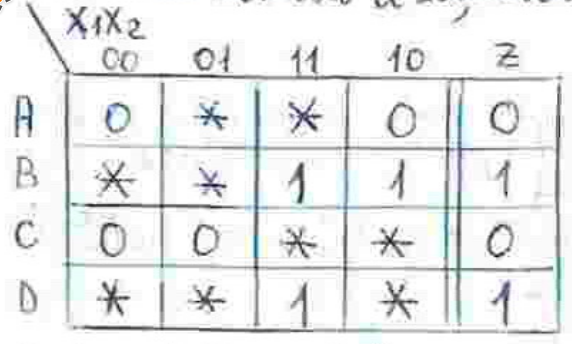 X1X2
00 01 11 10 Z
A 0 * * 0 0
B * * 1 1 1
C 0 0 * * 0
D * * 1 * 1